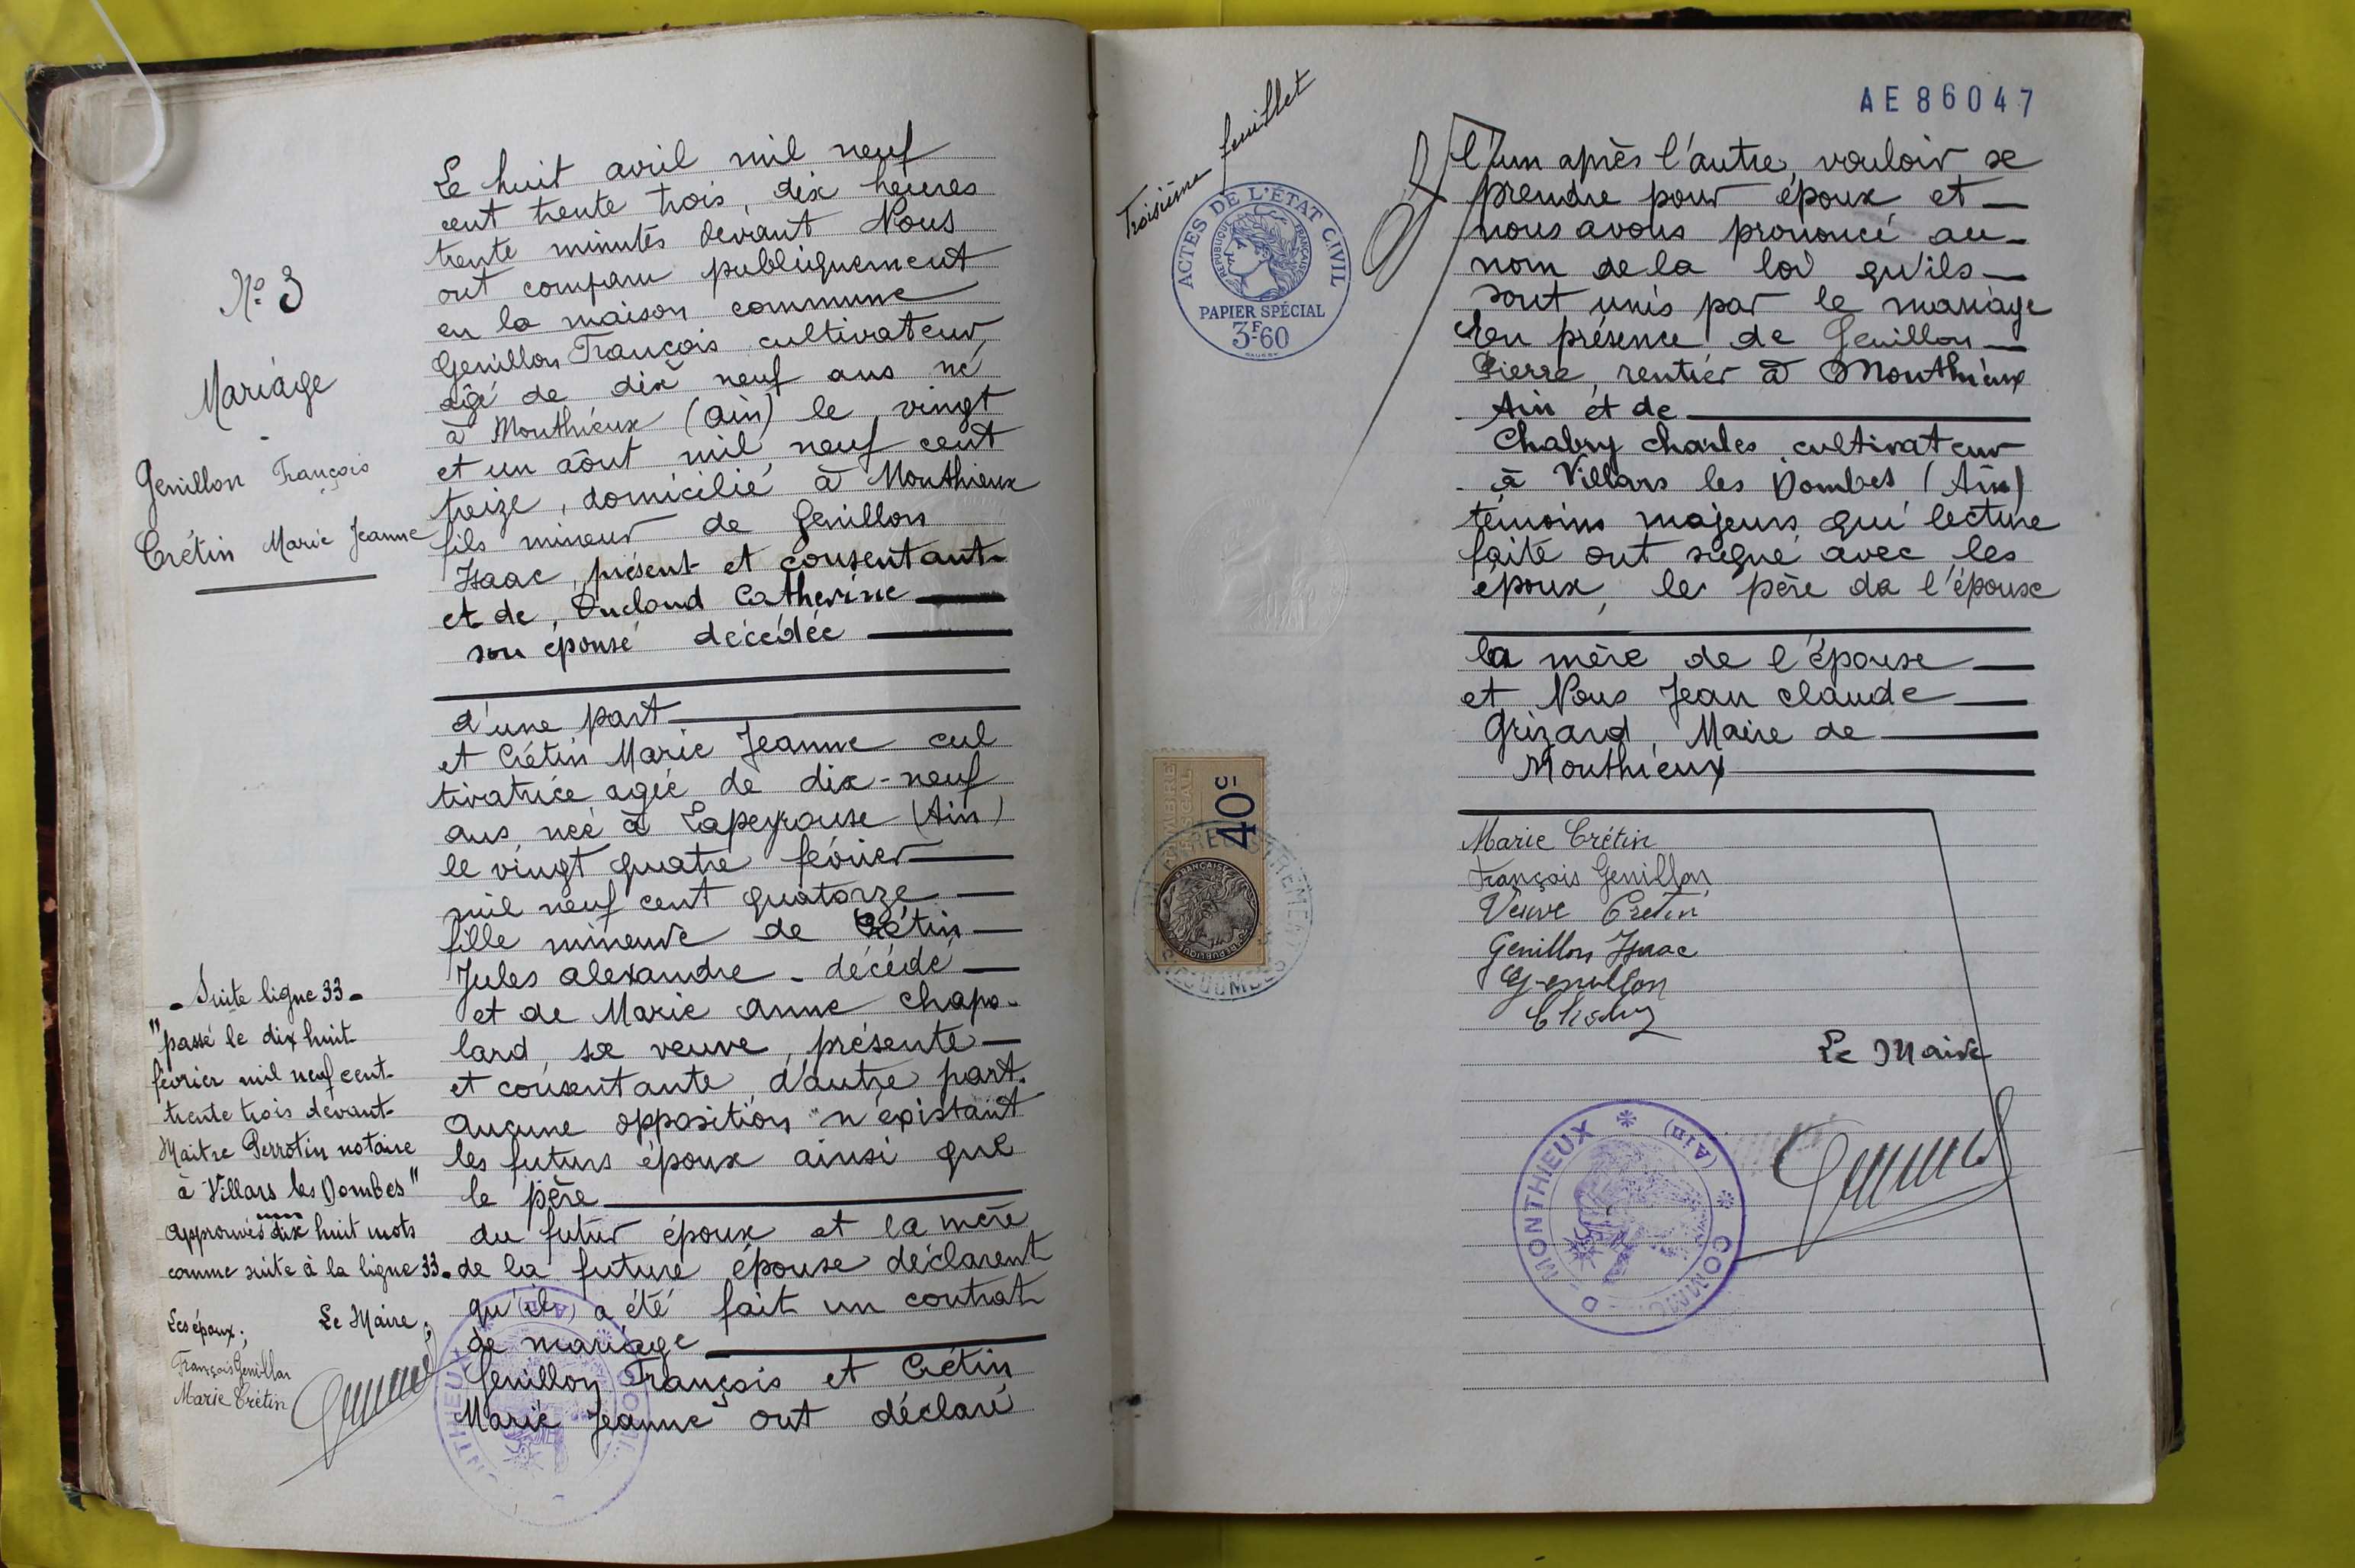 N° 3
Mariage
Genillon François
Crétin Marie Jeanne
Le huit avril mil neuf
cent trente trois, dix heures
trente minutes devant Nous
ont comparu publiquement
en la maison commune
Genillon François cultivateur,
âgé de dix neuf ans né
à Monthieux (Ain) le vingt
et un août mil neuf cent
treize, domicilié à Monthieux
fils mineur de Genillon
Isaac, présent et consentant
et de, Ducloud Catherine
son épouse décédée
d'une part
et Crétin Marie Jeanne cul
tivatrice agée de dix-neuf
ans, née à Lapeyrouse (Ain)
le vingt quatre février
mil neuf cent quatorze
fille mineure de Crétin
Jules alexandre - décédé
et de Marie Anne Chapo-
lard, sa veuve, présente
et consentante, d'autre part.
Aucune opposition n'existant
les futurs époux ainsi que
le père
du futur époux et la mère
de la future épouse déclarent
qu'il a été fait un contrat
de mariage
Genillon François et Crétin
Marie Jeanne ont déclaré
- Suite ligne 33 -
"passé le dix huit
février mil neuf cent-
trente trois devant-
Maitre Perrotin notaire
à Villars les Dombes"
Approuvés dix huit mots
comme suite à la ligne 33.
Les époux; Le Maire;
François Genillon
Marie Crétin
Troisième feuillet
ACTES DE L'ÉTAT CIVIL
RÉPUBLIQUE FRANÇAISE
PAPIER SPÉCIAL
3F60
AE86047
l'un après l'autre, vouloir se
prendre pour époux et
nous avons prononcé au
nom de la loi qu'ils
sont unis par le mariage
En présence de Genillon
Pierre, rentier à Monthieux
Ain et de
Chabry Charles, cultivateur
à Villars les Dombes (Ain)
témoins majeurs qui lecture
faite ont signé avec les
époux, le père da l'épouse
la mère de l'épouse
et Nous Jean Claude
Grizard, Maire de
Monthieux
TIMBRE FISCAL
40c
Marie Crétin
François Genillon
Veuve Crétin
Genillon Isaac
Genillon
Le Maire
MONTHIEUX * (Ain) *